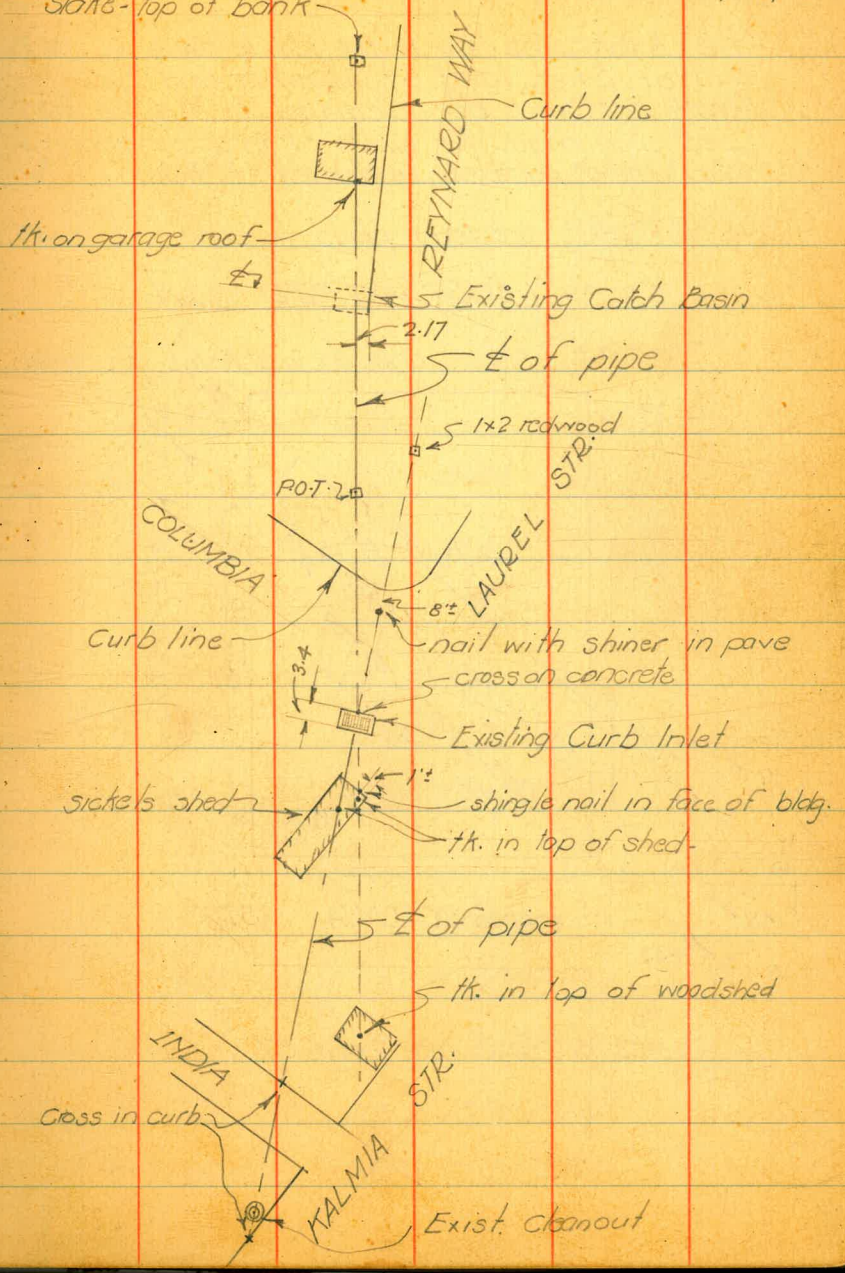 Stake-top of bank
Curb line
REYNARD WAY
tk. on garage roof
℄
Existing Catch Basin
2.17
℄ of pipe
1x2 redwood
P.O.T.
COLUMBIA
LAUREL STR.
8'±
Curb line
nail with shiner in pave
3.4
cross on concrete
Existing Curb Inlet
1'±
sickels shed
shingle nail in face of bldg.
tk. in top of shed
℄ of pipe
tk. in top of woodshed
INDIA
KALMIA STR.
Cross in curb
Exist. Cleanout